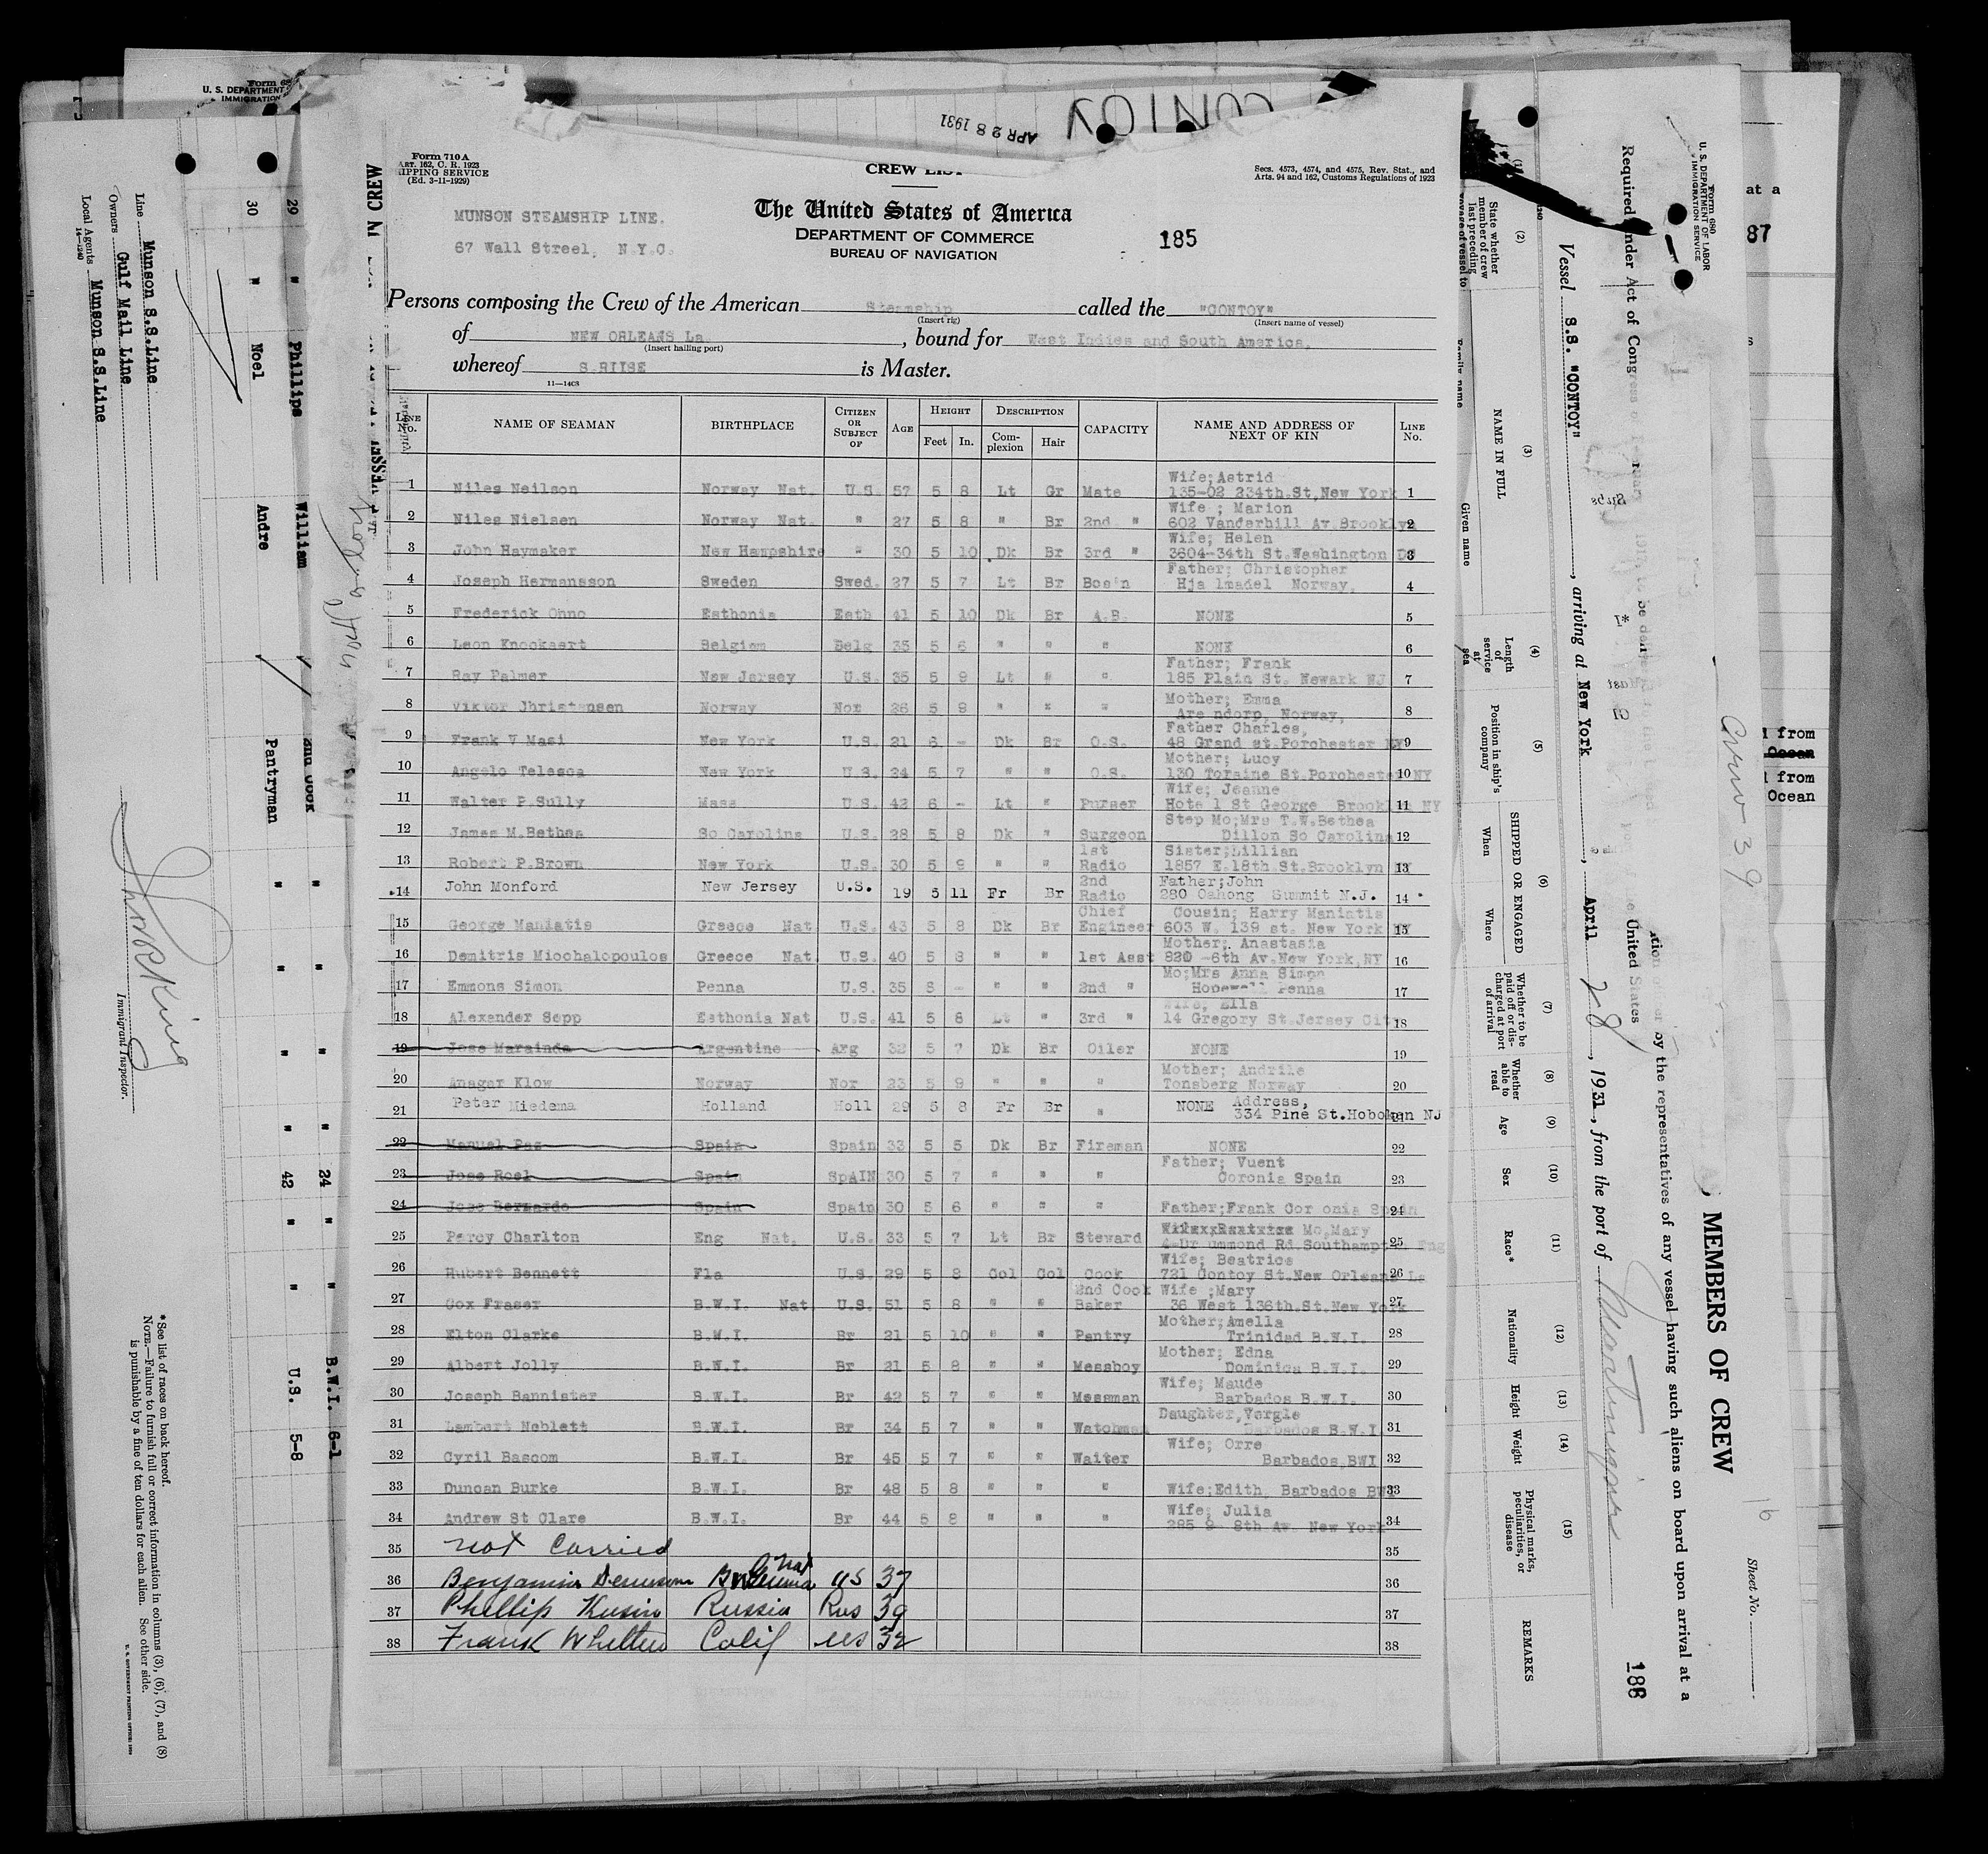 Form 710A
ART. 162, C. R. 1923
SHIPPING SERVICE
(Ed. 3-11-1929)
APR 28 1931
CONTOY
CREW LIST
Secs. 4573, 4574, and 4575, Rev. Stat., and
Arts. 94 and 162, Customs Regulations of 1923
MUNSON STEAMSHIP LINE.
67 Wall Streel, N.Y.C.
The United States of America
DEPARTMENT OF COMMERCE
BUREAU OF NAVIGATION
185
Persons composing the Crew of the American Steamship called the "CONTOY"
(Insert rig) (Insert name of vessel)
of NEW ORLEANS La. , bound for West Indies and South America.
(Insert hailing port)
whereof S.RIISE is Master.
11—1408
LINE No. NAME OF SEAMAN BIRTHPLACE CITIZEN OR SUBJECT OF AGE HEIGHT Feet In. DESCRIPTION Complexion Hair CAPACITY NAME AND ADDRESS OF NEXT OF KIN LINE No.
1 Niles Neilson Norway Nat. U.S. 57 5 8 Lt Gr Mate Wife;Astrid 135-02 234th.St,New York 1
2 Niles Nielsen Norway Nat. " 27 5 8 " Br 2nd " Wife ; Marion 602 Vanderhill Av.Brooklyn 2
3 John Haymaker New Hampshire " 30 5 10 Dk Br 3rd " Wife; Helen 3604-34th St.Washington DC 3
4 Joseph Hermansson Sweden Swed. 27 5 7 Lt Br Bos'n Father; Christopher Hja lmadel Norway, 4
5 Frederick Ohno Esthonia Esth 41 5 10 Dk Br A.B. NONE 5
6 Leon Knockaert Belgium Belg 35 5 6 " " " NONE 6
7 Ray Palmer New Jersey U.S. 35 5 9 Lt " " Father; Frank 185 Plain St. Newark NJ 7
8 Viktor Jhristensen Norway Nor 26 5 9 " " " Mother; Emma Are ndorp, Norway, 8
9 Frank V Masi New York U.S. 21 6 - Dk Br O.S. Father Charles, 48 Grand st.Porchester NY 9
10 Angelo Telesca New York U.S. 24 5 7 " " O.S. Mother; Lucy 130 Toraine St.Porchester NY 10
11 Walter P.Sully Mass U.S. 42 6 - Lt " Purser Wife; Jeanne Hote l St George Brooklyn NY 11
12 James M.Bethea So Carolina U.S. 28 5 8 Dk " Surgeon Step Mo;Mrs T.W.Bethea Dillon So Carolina 12
13 Robert P.Brown New York U.S. 30 5 9 " " 1st Radio Sister;Lillian 1857 E.18th.St.Brooklyn NY 13
14 John Monford New Jersey U.S. 19 5 11 Fr Br 2nd Radio Father;John 280 Oahong Summit N.J. 14
15 George Maniatis Greece Nat U.S. 43 5 8 Dk Br Chief Engineer Cousin; Harry Maniatis 603 W. 139 st. New York NY 15
16 Demitris Miochalopoulos Greece Nat U.S. 40 5 8 " " 1st Asst Mother; Anastasia 820 -6th Av.New York,NY 16
17 Emmons Simon Penna U.S. 35 5 - " " 2nd " Mo;Mrs Anna Simon Hopewell Penna 17
18 Alexander Sepp Esthonia Nat U.S. 41 5 8 Lt " 3rd " Wife; Ella 14 Gregory St.Jersey City 18
19 Jose Marainda Argentine Arg 32 5 7 Dk Br Oiler NONE 19
20 Ansgar Klow Norway Nor 23 5 9 " " " Mother; Andrile Tonsberg Norway 20
21 Peter Miedema Holland Holl 29 5 8 Fr Br " NONE Address, 334 Pine St.Hoboken NJ 21
22 Manuel Paz Spain Spain 33 5 5 Dk Br Fireman NONE 22
23 Jose Roel Spain SpAIN 30 5 7 " " " Father; Vuent Coronia Spain 23
24 Jose Bernardo Spain Spain 30 5 6 " " " Father;Frank Cor onia Spain 24
25 Percy Charlton Eng Nat. U.S. 33 5 7 Lt Br Steward Mo,Mary 4-Dr ummond Rd.Southampton Eng 25
26 Hubert Bennett Fla U.S. 29 5 8 Col Col Cook Wife; Beatrice 721 Contoy St.New Orleans La 26
27 Cox Fraser B.W.I. Nat U.S. 51 5 8 " " 2nd Cook Baker Wife ;Mary 36 West 136th.St.New York 27
28 Elton Clarke B.W.I. Br 21 5 10 " " Pantry Mother;Amella Trinidad B.W.I. 28
29 Albert Jolly B.W.I. Br 21 5 8 " " Messboy Mother; Edna Dominica B.W.I. 29
30 Joseph Bannister B.W.I. Br 42 5 7 " " Messman Wife; Maude Barbados B.W.I. 30
31 Lambert Neblett B.W.I. Br 34 5 7 " " Watchman Daughter,Vergle Barbados B.W.I. 31
32 Cyril Bascom B.W.I. Br 45 5 7 " " Waiter Wife; Orre Barbados,BWI 32
33 Duncan Burke B.W.I. Br 48 5 8 " " " Wife;Edith, Barbados BWI 33
34 Andrew St Clare B.W.I. Br 44 5 8 " " " Wife; Julia 285 9 8th Av. New York 34
35 not Carried 35
36 Benjamin Nat US 37 36
37 Phillip Kusin Russia Rus 39 37
38 Frank Whitten Calif US 32 38
Form 680
U. S. DEPARTMENT OF LABOR
IMMIGRATION SERVICE
Line Munson S.S.Line
Owners Gulf Mail Line
Local Agents Munson S.S.Line
14—1240
29 " Phillips William 2nd Cook " " " " 24 " " B.W.I. 6-1
30 " Noel Andre Pantryman " " " " 42 " " U.S. 5-8
Immigrant Inspector.
*See list of races on back hereof.
NOTE.—Failure to furnish full or correct information in columns (3), (6), (7), and (8)
is punishable by a fine of ten dollars for each alien. See other side.
Form 680
U. S. DEPARTMENT OF LABOR
IMMIGRATION SERVICE
MEMBERS OF CREW
Sheet No. 16
Required under Act of Congress of
United States
by the representatives of any vessel having such aliens on board upon arrival at a
Crew 39
186
Vessel S.S. "CONTOY" , arriving at New York , April 28 , 1931, from the port of
(2) State whether member of crew last preceding voyage of vessel to
(3) NAME IN FULL Family name Given name
(4) Length of service at sea
(5) Position in ship's company
(6) SHIPPED OR ENGAGED When Where
(7) Whether to be paid off or discharged at port of arrival
(8) Whether able to read
(9) Age
(10) Sex
(11) Race*
(12) Nationality
(13) Height
(14) Weight
(15) Physical marks, peculiarities, or disease
REMARKS
at a
87
from
Ocean
from
Ocean